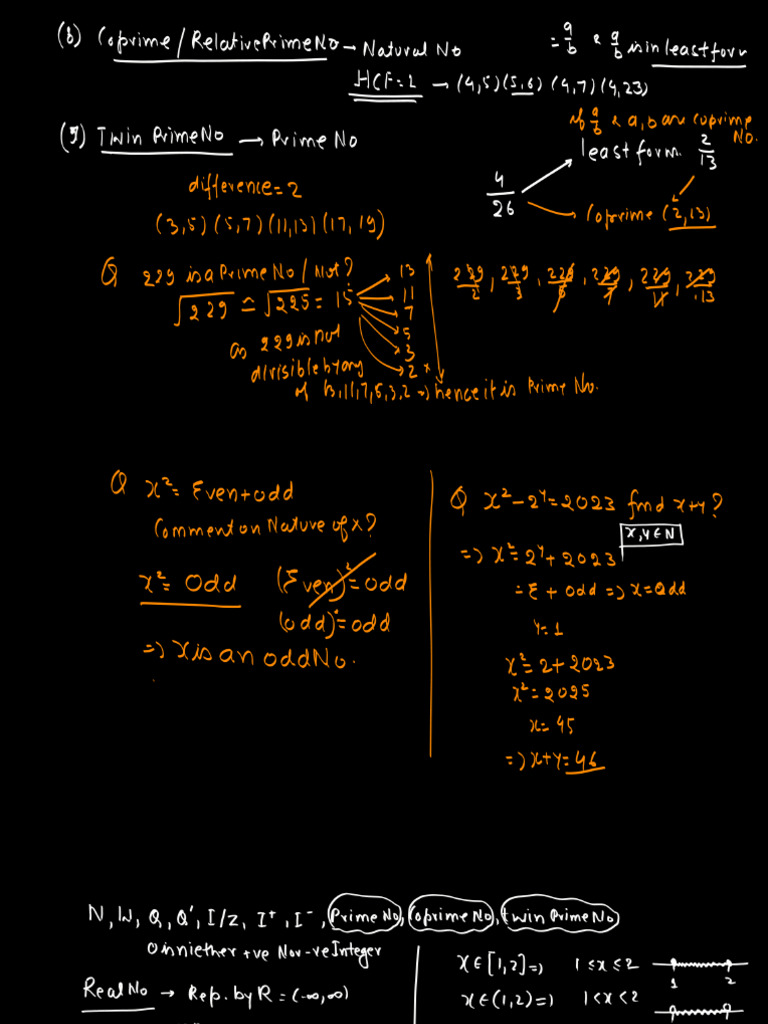 (6) Coprime / Relative Prime No → Natural No
= a/b & a/b is in least form
HCF=1 → (4,5) (5,6) (4,7) (4,23)
if a/b & a,b are coprime No.
(7) Twin Prime No → Prime No
least form 2/13
difference = 2
4/26
→ Coprime (2,13)
(3,5) (5,7) (11,13) (17,19)
Q 229 is a Prime No / Not?
√229 ≃ √225 = 15
13
11
7
5
3
2 ×
229/2, 229/3, 229/5, 229/7, 229/11, 229/13
as 229 is not
divisible by any
of 13,11,7,5,3,2 => hence it is Prime No.
Q x² = Even + odd
Comment on Nature of x?
x² = Odd (Even)² = odd
(odd)² = odd
=> x is an odd No.
Q x² - 2^y = 2023 find x+y?
x,y ∈ N
=> x² = 2^y + 2023
= E + odd => x = Odd
y = 1
x² = 2 + 2023
x² = 2025
x = 45
=> x+y = 46
N, W, Q, Q', I/Z, I⁺, I⁻, Prime No, Coprime No, twin Prime No
0 is niether +ve Nor -ve Integer
Real No → Rep. by R = (-∞,∞)
x ∈ [1,2] => 1 ≤ x ≤ 2
1 2
x ∈ (1,2) => 1 < x < 2